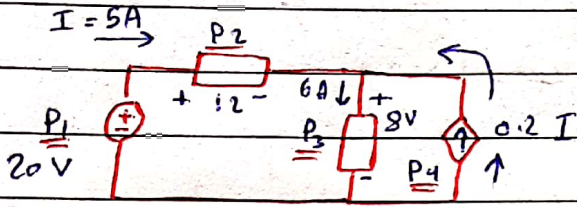 I = 5A
P2
+ 12 -
6A ↓ +
P1
+
-
20 V
P3
8V
-
P4
0.2 I